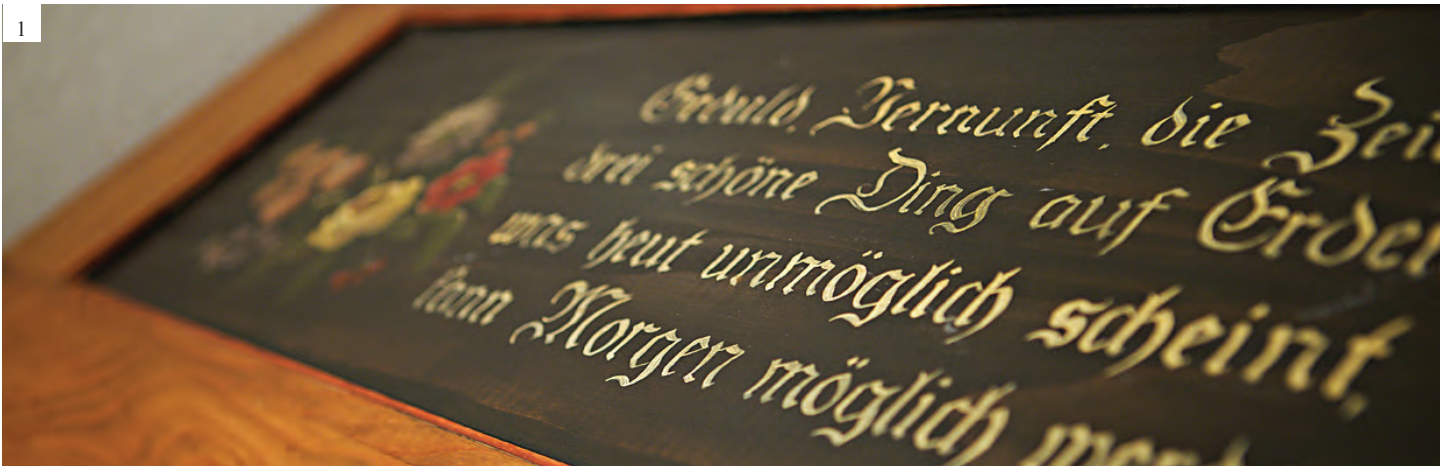 1
Geduld, Vernunft, die Zei
drei schöne Ding auf Erden
was heut unmöglich scheint,
kann Morgen möglich werd